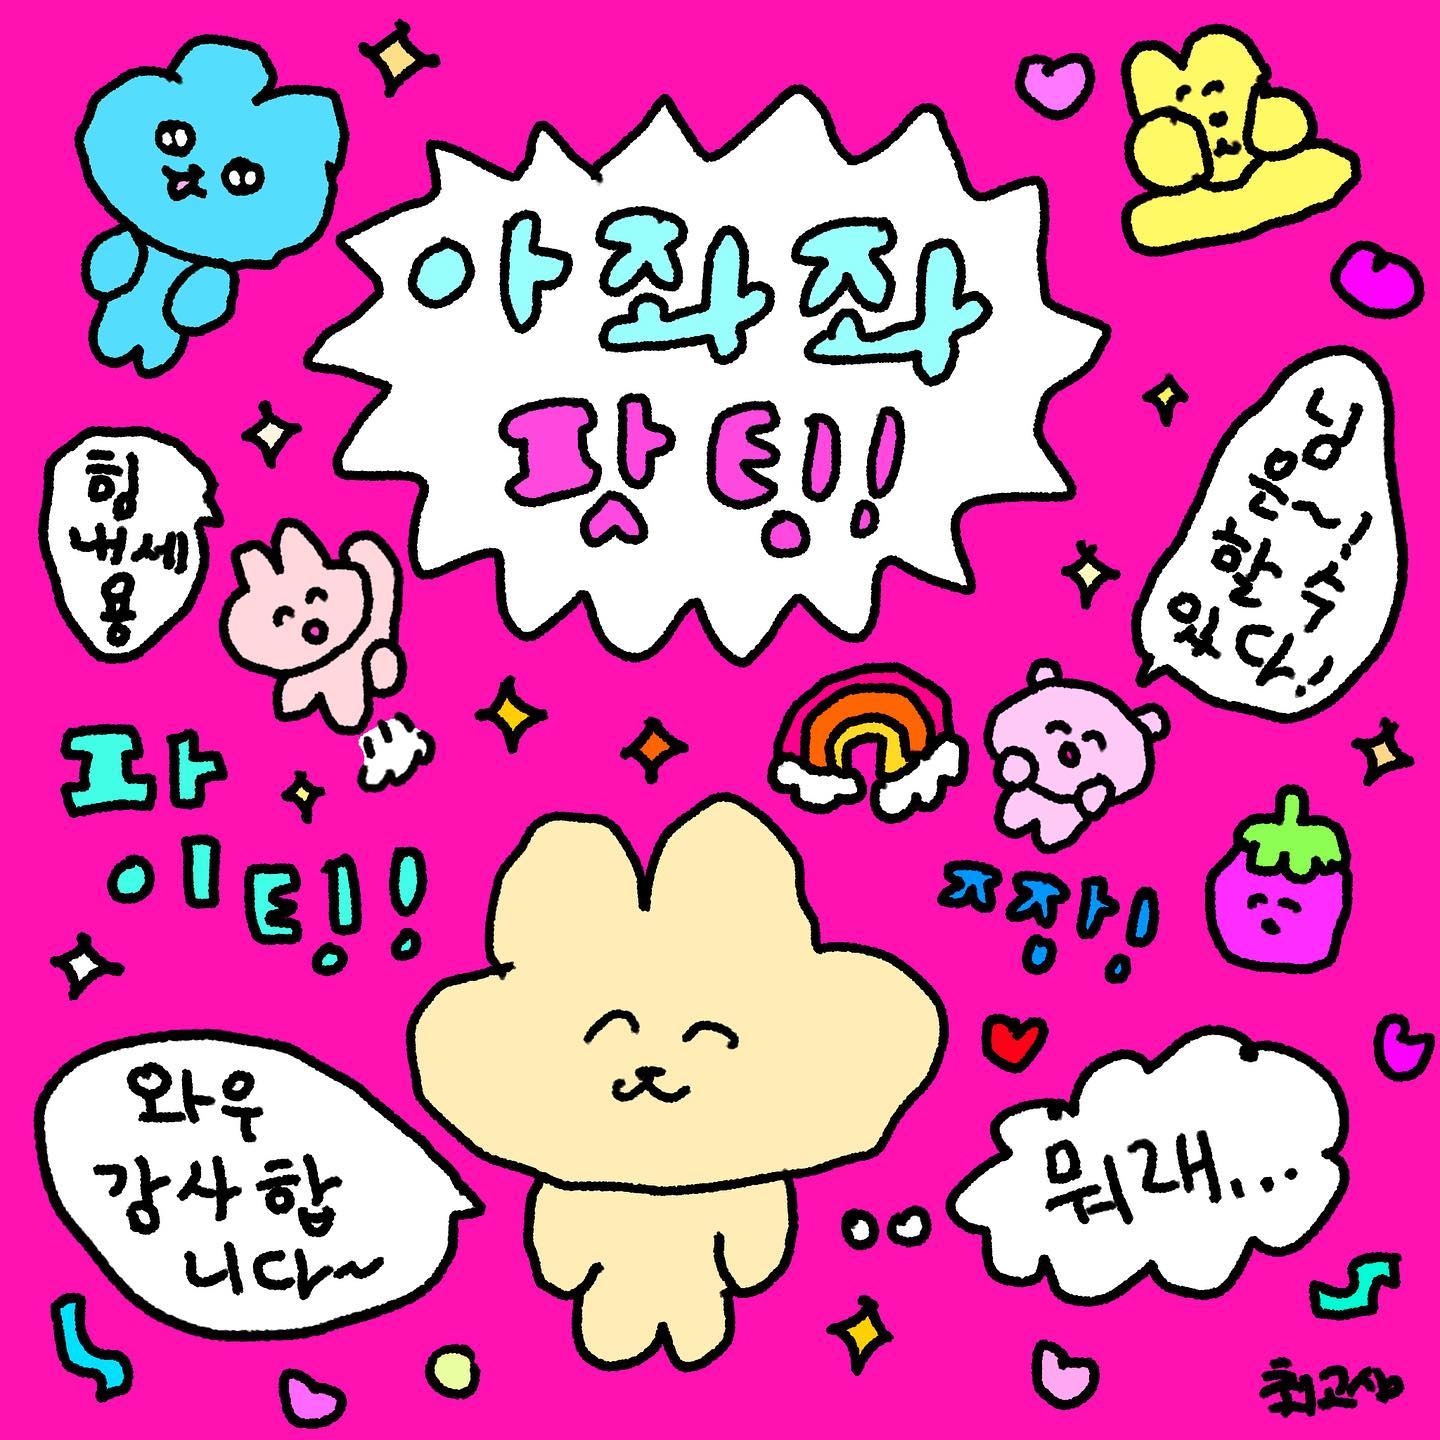 아좌좌
팟팅!
힘
내세
용
님
은~!
할 수
있다!
파
이팅!
짱!
와우
감사합
니다~
뭐래...
최고심